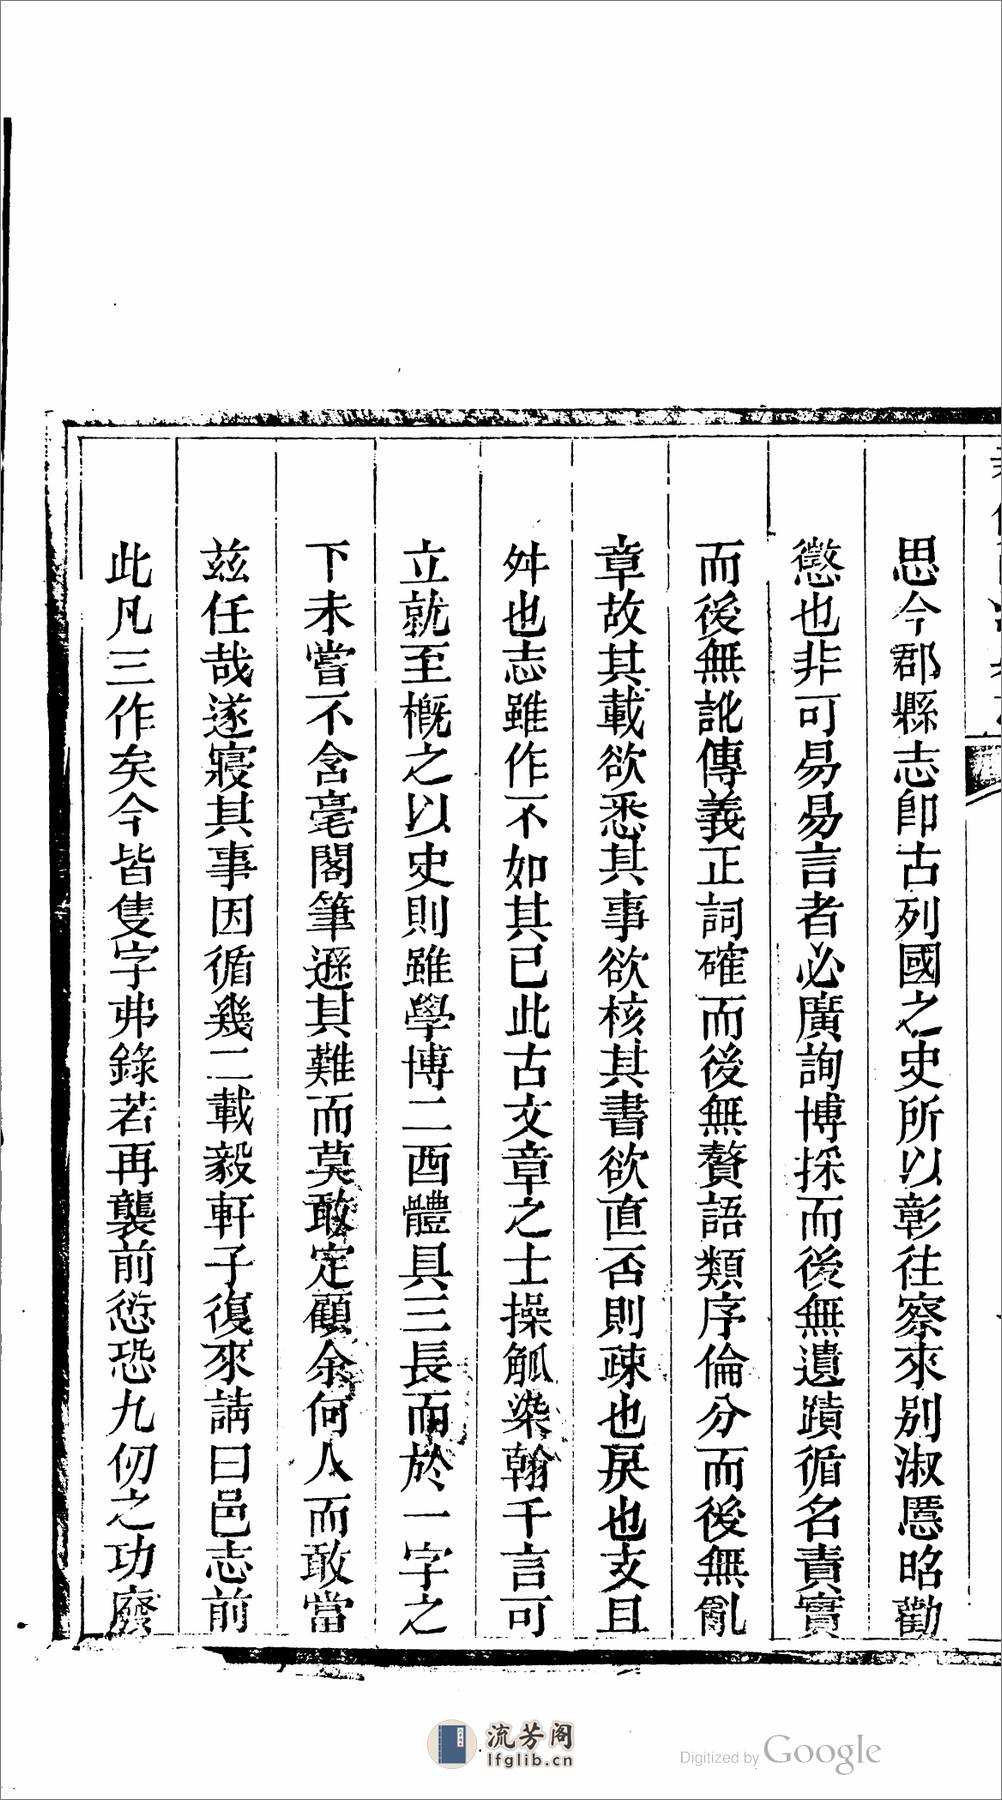 思今郡縣志卽古列國之史所以彰往察來別淑慝昭勸
懲也非可易易言者必廣詢博採而後無遺蹟循名責實
而後無訛傳義正詞確而後無贅語類序倫分而後無亂
章故其載欲悉其事欲核其書欲直否則疎也戾也支且
舛也志雖作不如其已此古文章之士操觚染翰千言可
立就至概之以史則雖學博二酉體具三長而於一字之
下未嘗不含毫閣筆遜其難而莫敢定顧余何人而敢當
茲任哉遂寢其事因循幾二載毅軒子復來請曰邑志前
此凡三作矣今皆隻字弗錄若再襲前愆恐九仞之功廢
流芳阁
lfglib.cn
Digitized by Google